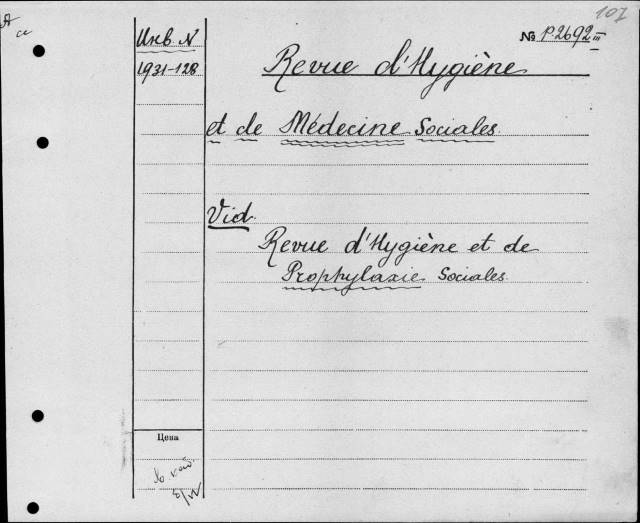 107
№ P.2692 III
Инв. N
1931-128
Revue d'Hygiène
et de Médecine Sociales.
Vid.
Revue d'Hygiène et de
Prophylaxie Sociales.
Цена